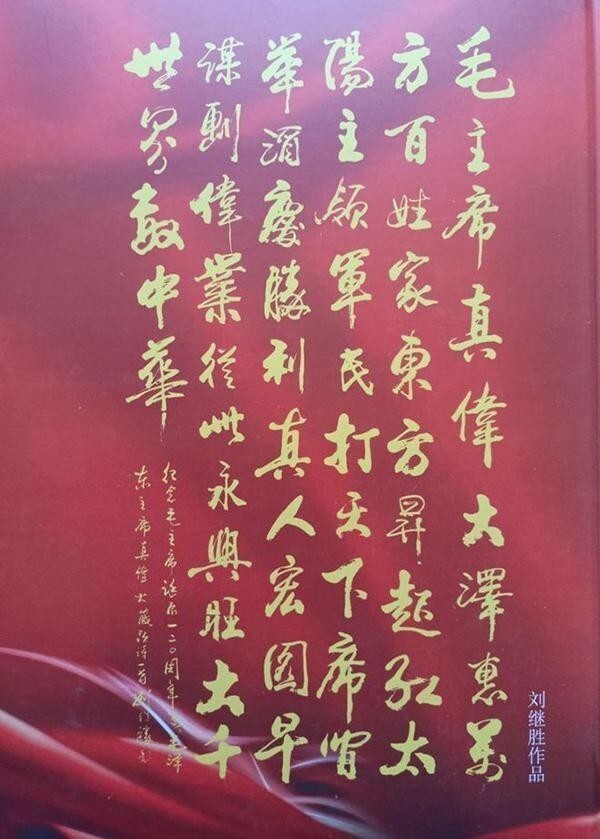 毛主席真偉大澤惠萬
方百姓家東方昇起紅太
陽主領軍民打天下席間
舉酒慶勝利真人宏圖早
謀劃偉業從此永興旺大千
世界敬中華
纪念毛主席诞辰一二〇周年以毛泽
东主席真伟大藏头诗一首
刘继胜作品